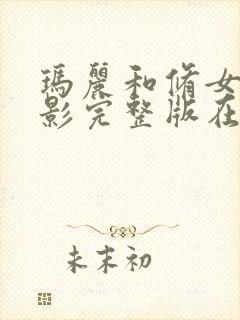 瑪麗和脩女
影完整版在
未末初